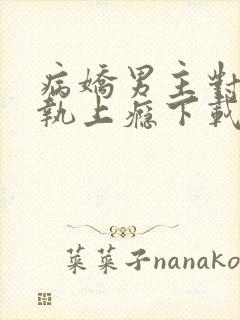 病嬌男主對
執上癮下載
菜菜子nanako